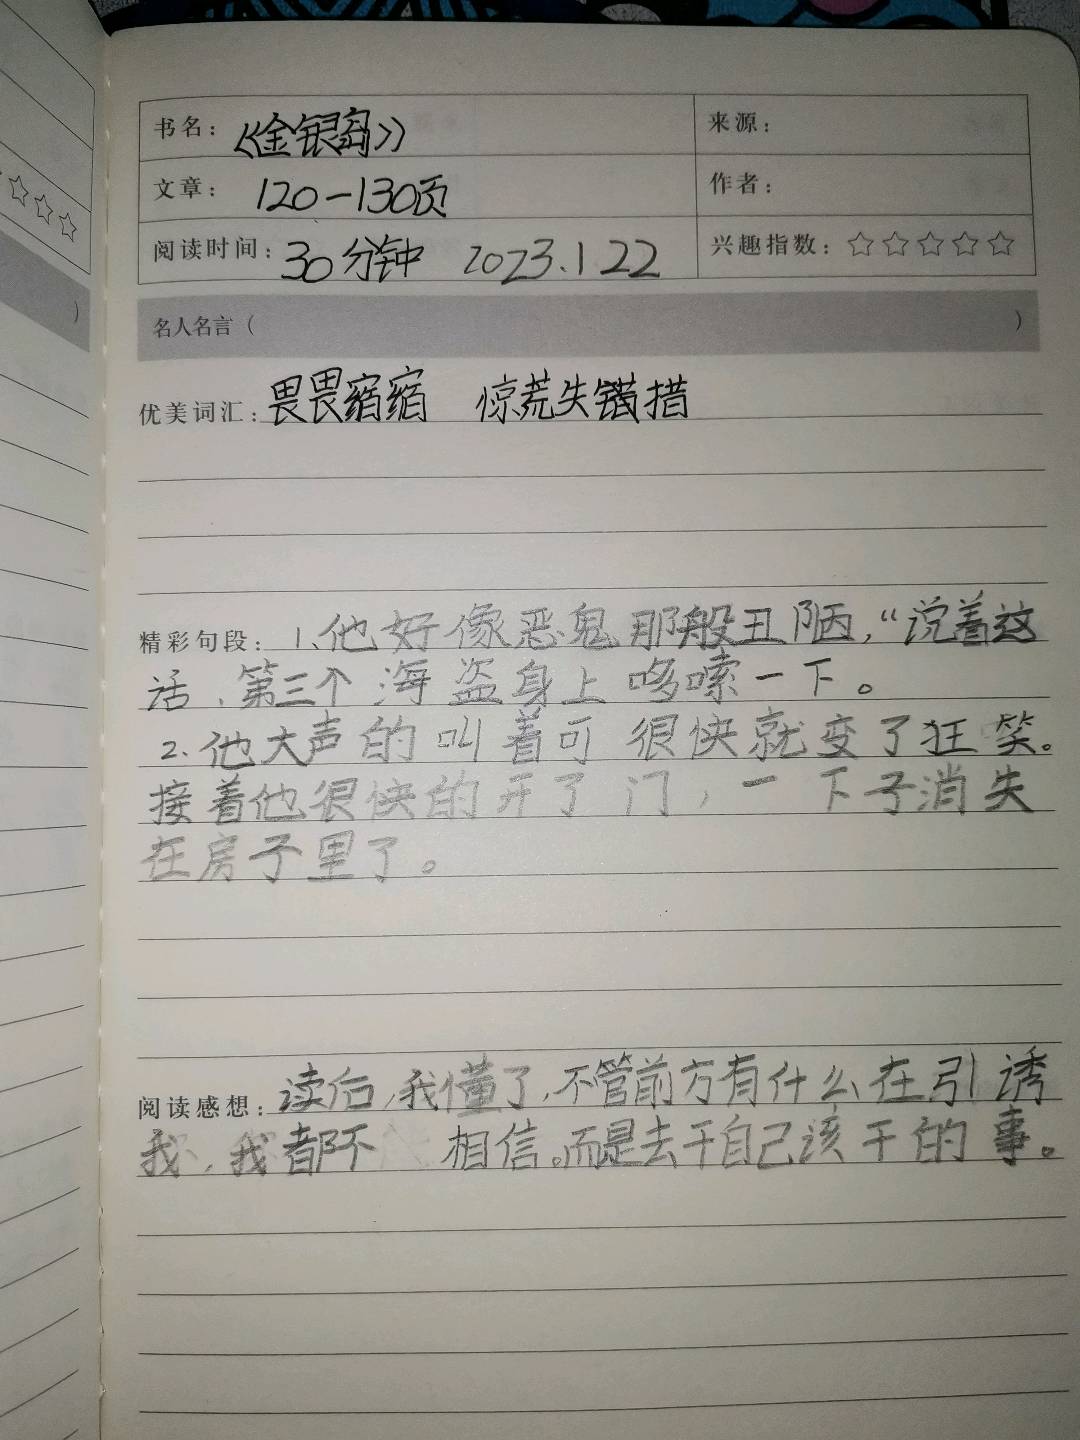 书名：《金银岛》 来源：
文章：120-130页 作者：
阅读时间：30分钟 2023.1 22 兴趣指数：☆☆☆☆☆
名人名言（ ）
优美词汇：畏畏缩缩 惊荒失措
精彩句段：1、他好像恶鬼那般丑陋，“说着这
话，第三个海盗身上哆嗦一下。
2.他大声的叫着可 很快就变了狂笑。
接着他很快的开了门，一下子消失
在房子里了。
阅读感想：读后，我懂了，不管前方有什么在引诱
我，我都不 相信。而是去干自己该干的事。
）